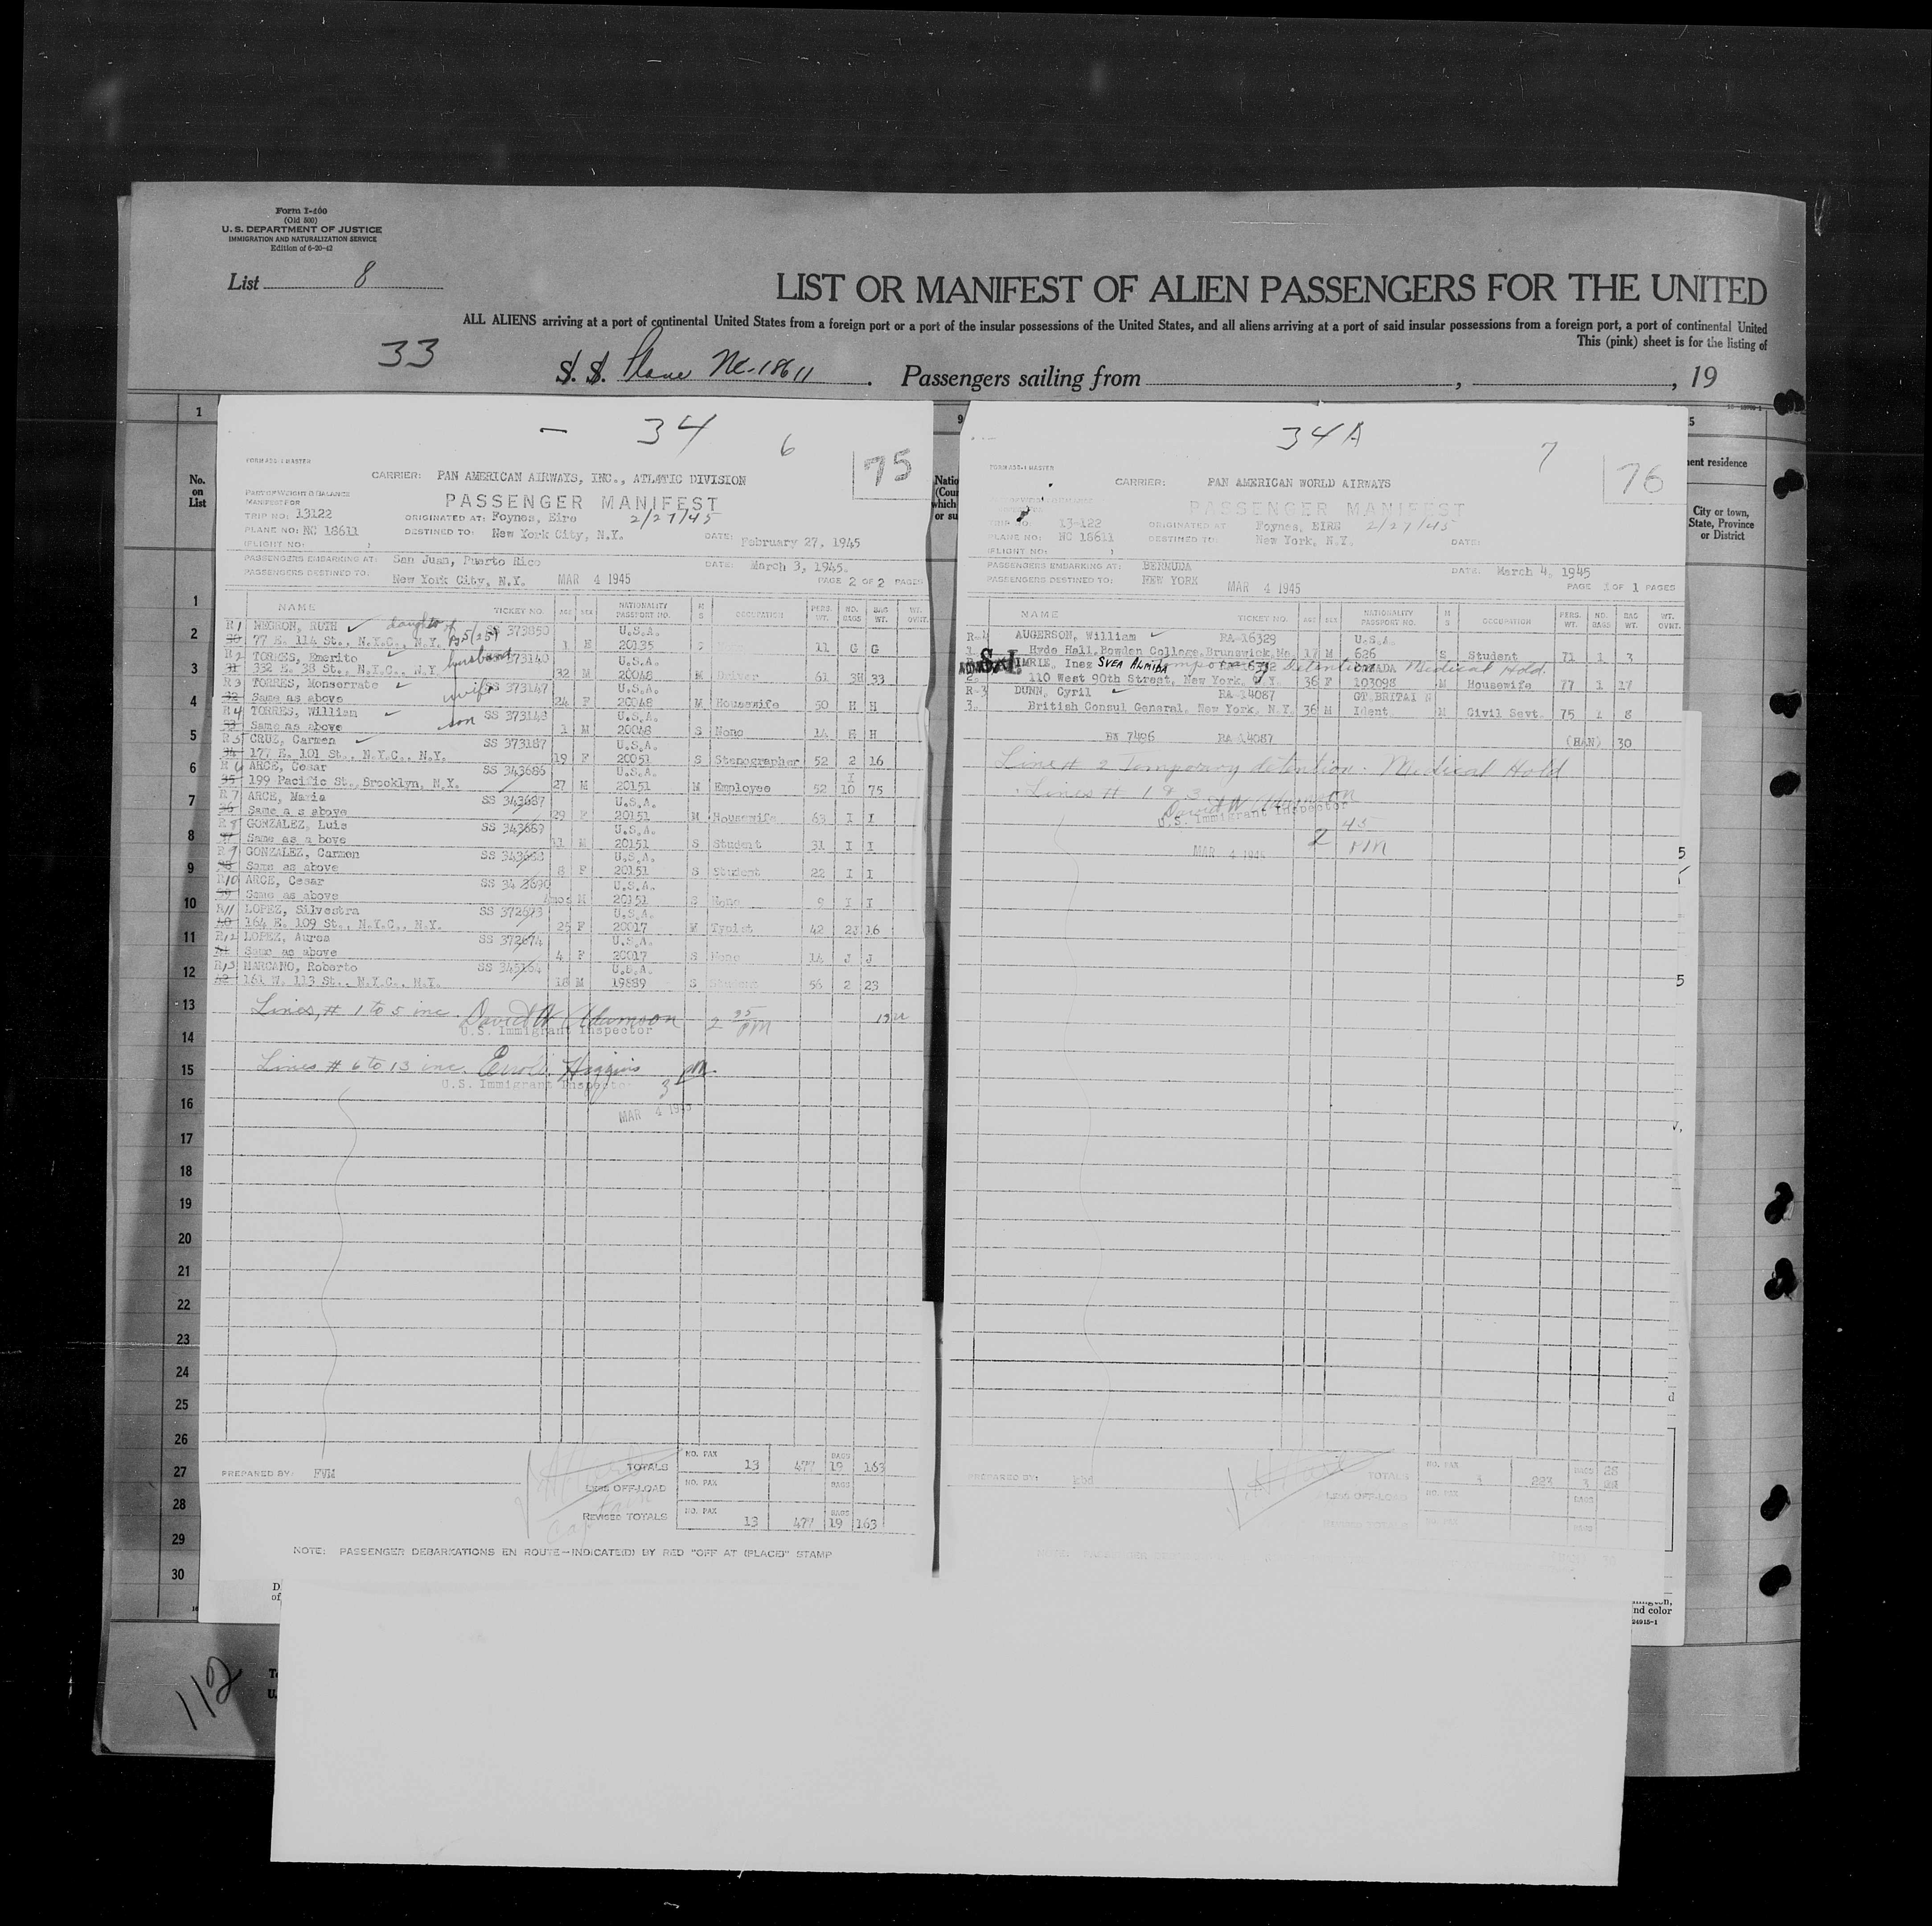 Form I-400
(Old 500)
U. S. DEPARTMENT OF JUSTICE
IMMIGRATION AND NATURALIZATION SERVICE
Edition of 6-20-42
List 8
LIST OR MANIFEST OF ALIEN PASSENGERS FOR THE UNITED
ALL ALIENS arriving at a port of continental United States from a foreign port or a port of the insular possessions of the United States, and all aliens arriving at a port of said insular possessions from a foreign port, a port of continental United
This (pink) sheet is for the listing of
33
S. S. Plane NC-18611. Passengers sailing from , , 19
1
No. on List
— 34 6
75
FORM ASD-1 MASTER
CARRIER: PAN AMERICAN AIRWAYS, INC., ATLATIC DIVISION
PART OF WEIGHT & BALANCE
MANIFEST FOR
PASSENGER MANIFEST
TRIP NO: 13122 ORIGINATED AT: Foynes, Eire 2/27/45
PLANE NO: NC 18611 DESTINED TO: New York City, N.Y. DATE: February 27, 1945
(FLIGHT NO: )
PASSENGERS EMBARKING AT: San Juan, Puerto Rico DATE: March 3, 1945.
PASSENGERS DESTINED TO: New York City, N.Y. MAR 4 1945 PAGE 2 OF 2 PAGES
NAME TICKET NO. AGE SEX NATIONALITY PASSPORT NO. M S OCCUPATION PERS. WT. NO. BAGS BAG WT. WT. OVRT.
R1 NEGRON, RUTH daughter of SS 373850 U.S.A.
30 77 E. 114 St., N.Y.C., N.Y. 1 F 20135 S 11 G G
R2 TORRES, Emerito husband 373140 U.S.A.
31 332 E. 38 St., N.Y.C., N.Y. 32 M 20048 M Driver 61 3H 33
R3 TORRES, Monserrate wife SS 373147 U.S.A.
32 Same as above 24 F 20048 M Housewife 50 H H
R4 TORRES, William son SS 373148 U.S.A.
33 Same as above 1 M 20048 S None 14 H H
R5 CRUZ, Carmen SS 373187 U.S.A.
34 177 E. 101 St., N.Y.C., N.Y. 19 F 20051 S Stenographer 52 2 16
R6 ARCE, Cesar SS 343686 U.S.A. I
35 199 Pacific St., Brooklyn, N.Y. 27 M 20151 M Employee 52 10 75
R7 ARCE, Maria SS 343687 U.S.A.
36 Same a s above 29 F 20151 M Housewife 63 I I
R8 GONZALEZ, Luis SS 343689 U.S.A.
37 Same as a bove 11 M 20151 S Student 31 I I
R9 GONZALEZ, Carmen SS 343688 U.S.A.
38 Same as above 8 F 20151 S Student 22 I I
R10 ARCE, Cesar SS 34 3690 U.S.A.
39 Same as above M 20151 S None 9 I I
R11 LOPEZ, Silvestra SS 372673 U.S.A.
40 164 E. 109 St., N.Y.C., N.Y. 25 F 20017 M Typist 42 2J 16
R12 LOPEZ, Aurea SS 372674 U.S.A.
41 Same as above 4 F 20017 S None 14 J J
R13 MARCANO, Roberto SS 343164 U.S.A.
42 161 W. 113 St., N.Y.C., N.Y. 18 M 19889 S Student 56 2 23
Lines, # 1 to 5 inc. David W Adamson 2 35 PM
U.S. Immigrant Inspector
Lines # 6 to 13 inc. Higgins 3 PM
U.S. Immigrant Inspector
MAR 4 1945
TOTALS NO. PAX 13 477 BAGS 19 163
PREPARED BY: FVM
LESS OFF-LOAD NO. PAX BAGS
REVISED TOTALS NO. PAX 13 477 BAGS 19 163
NOTE: PASSENGER DEBARKATIONS EN ROUTE—INDICATE(D) BY RED "OFF AT (PLACE)" STAMP
34A 7
76
FORM ASD-1 MASTER
CARRIER: PAN AMERICAN WORLD AIRWAYS
PASSENGER MANIFEST
TRIP NO: 13-122 ORIGINATED AT Foynes, EIRE 2/27/45
PLANE NO: NC 18611 DESTINED TO: New York, N.Y. DATE:
(FLIGHT NO: )
PASSENGERS EMBARKING AT: BERMUDA DATE. March 4, 1945
PASSENGERS DESTINED TO: NEW YORK MAR 4 1945 PAGE 1 OF 1 PAGES
NAME TICKET NO. AGE SEX NATIONALITY PASSPORT NO. M S OCCUPATION PERS. WT. NO. BAGS BAG WT. WT. OVRT.
R-1 AUGERSON, William RA-16329 U.S.A.
1. Hyde Hall, Bowden College, Brunswick, Me. 17 M 626 S Student 71 1 3
S.I. IMRIE, Inez SVEA ALMIDA Temporary Detention CANADA Medical Hold.
2. 110 West 90th Street, New York, N.Y. 36 F 103098 M Housewife 77 1 17
R-3 DUNN, Cyril RA 14087 GT BRITAI N
3. British Consul General, New York, N.Y. 36 M Ident. M Civil Savt. 75 1 8
BX 7496 RA 14087 (HAN) 30
Line # 2 Temporary detention. Medical Hold
Lines # 1 & 3 David W Adamson
U.S. Immigrant Inspector
2 45 PM
MAR 4 1945
PREPARED BY: kbd
TOTALS NO. PAX 3 223 BAGS 3 28
LESS OFF-LOAD NO. PAX BAGS
1
2
3
4
5
6
7
8
9
10
11
12
13
14
15
16
17
18
19
20
21
22
23
24
25
26
27
28
29
30
City or town, State, Province or District
nd color
24915-1
112